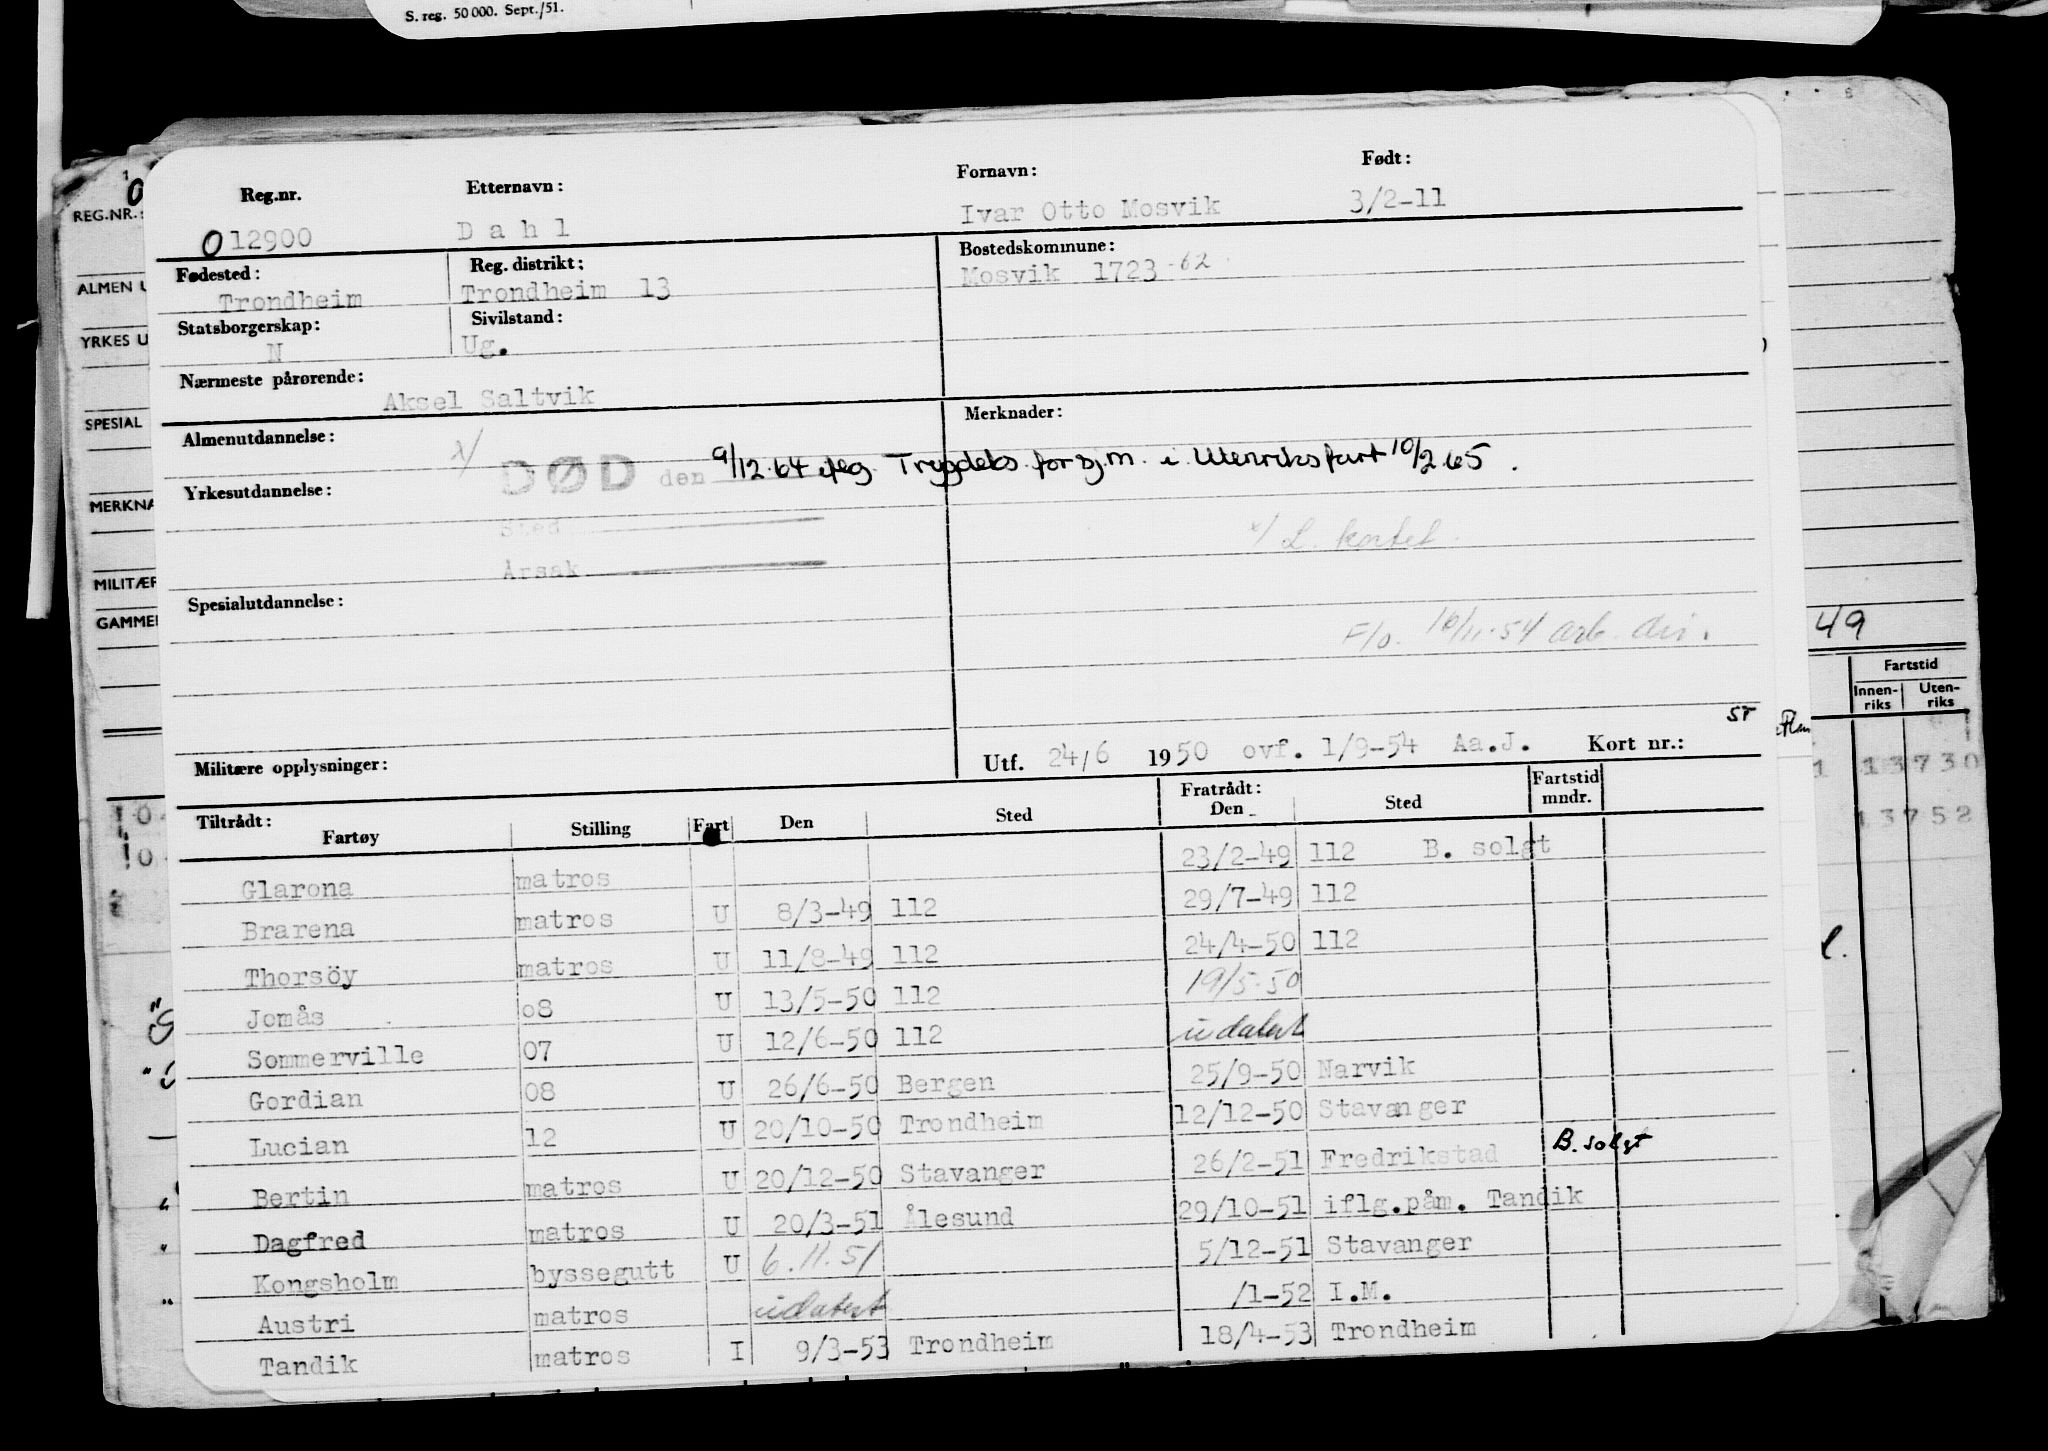 S. reg. 50 000. Sept./51.
Reg.nr. Etternavn: Fornavn: Født:
012900 Dahl Ivar Otto Mosvik 3/2-11
Fødested: Reg. distrikt: Bostedskommune:
Trondheim Trondheim 13 Mosvik 1723-62
Statsborgerskap: Sivilstand:
N Ug.
Nærmeste pårørende:
Aksel Saltvik
Almenutdannelse: Merknader:
x/ DØD den 9/12.64 iflg. Trygdeks. for sj.m. i Utenriksfart 10/2.65.
Yrkesutdannelse:
Sted
x/ L. kortet.
Årsak
Spesialutdannelse:
F/o. 16/11.54 arb. dir.
ST
Militære opplysninger: Utf. 24/6 1950 ovf. 1/9-54 Aa.J. Kort nr.:
Tiltrådt: Fratrådt: Fartstid
Fartøy Stilling Fart Den Sted Den Sted mndr.
Glarona matros 23/2-49 112 B. solgt
Brarena matros U 8/3-49 112 29/7-49 112
Thorsöy matros U 11/8-49 112 24/4-50 112
Jomås 08 U 13/5-50 112 19/5-50
Sommerville 07 U 12/6-50 112 udatert
Gordian 08 U 26/6-50 Bergen 25/9-50 Narvik
Lucian 12 U 20/10-50 Trondheim 12/12-50 Stavanger
Bertin matros U 20/12-50 Stavanger 26/2-51 Fredrikstad B. solgt
Dagfred matros U 20/3-51 Ålesund 29/10-51 iflg.påm. Tandik
Kongsholm byssegutt U 6.11.51 5/12-51 Stavanger
Austri matros udatert /1-52 I.M.
Tandik matros I 9/3-53 Trondheim 18/4-53 Trondheim
REG.NR.:
ALMEN U
YRKES U
SPESIAL
MERKNA
MILITÆR
GAMMEL
49
Fartstid
Innen-riks Uten-riks
13730
13752